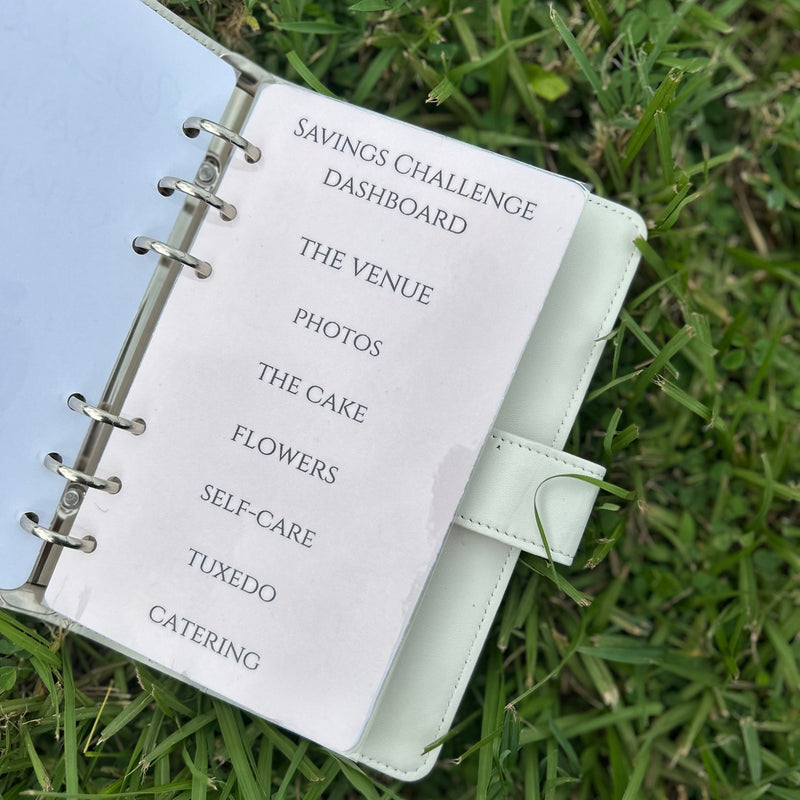 Savings Challenge
Dashboard
The Venue
Photos
The Cake
Flowers
Self-Care
Tuxedo
Catering